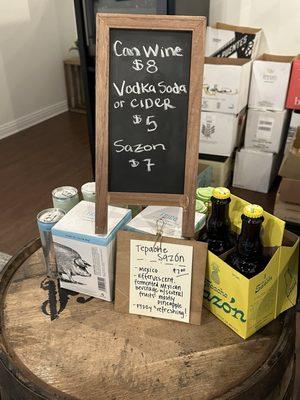 Can Wine
$8
Vodka Soda
or CIDER
$5
Sazon
$7
Tepache
Sazón
- Mexico $7.00
- Effervescent
fermented Mexican
beverage w/several
fruits' mostly
pineapple
- Fizzy & refreshing!
azón